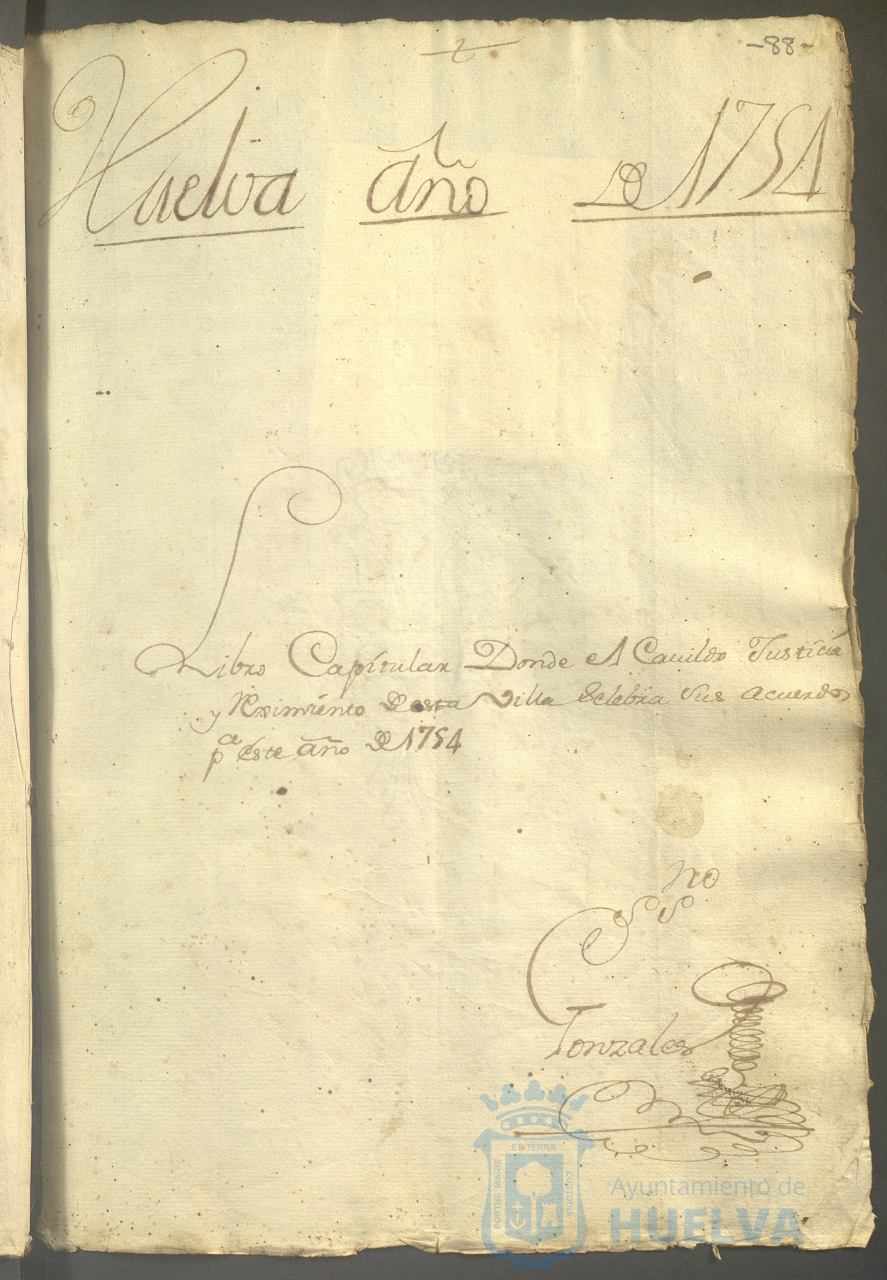 -88-
Huelva año de 1754
Libro Capitular Donde el Cavildo Justicia
y Reximiento de esta Villa Selebra sus acuerdos
pª este año de 1754
Sno
Gonzales
ET TERRÆ
PORTUS MARIS
CUSTODIA
Ayuntamiento de
HUELVA